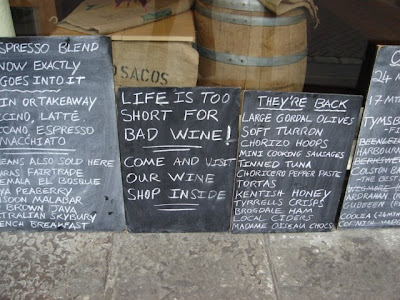 SACOS
ESPRESSO BLEND
NOW EXACTLY
GOES INTO IT
IN OR TAKEAWAY
CINO, LATTÉ
CANO, ESPRESSO
MACCHIATO
EANS ALSO SOLD HERE
FAIRTRADE
EL BOSQUE
PEABERRY
MONSOON MALABAR
BROWN JAVA
TRALIAN SKYBURY
ENCH BREAKFAST
LIFE IS TOO
SHORT FOR
BAD WINE!
COME AND VISIT
OUR WINE
SHOP INSIDE
THEY'RE BACK
LARGE GORDAL OLIVES
SOFT TURRON
CHORIZO HOOPS
MINI COOKING SAUSAGES
TINNED TUNA
CHORICERO PEPPER PASTE
TORTAS
KENTISH HONEY
TYRRELLS CRISPS
BROGDALE HAM
LOCAL CIDERS
MADAME OISEAU CHOCS
24 M
17 MTH
TYMSB
COLSTON BA